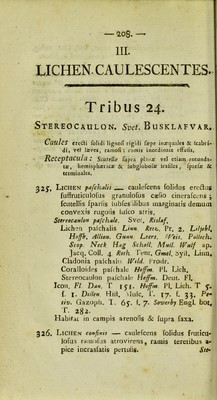 — 208. —
III.
LICHEN. CAULESCENTES.
Tribus 24.
STEREOCAULON. Svet. BUSKLAFVAR.
Caules erecti solidi lignosi rigidi sæpe inæquales & scabridi, vel læves, ramosi: ramis inordinate effusis.
Receptacula: Scutellæ supra planæ vel etiam rotundatæ, hemisphæricæ & subglobosæ sessiles, sparsæ & terminales.
325. LICHEN paschalis — caulescens solidus erectus
suffruticulosus granulosus cæsio cinerascens;
scutellis sparsis subsessilibus marginatis demum
convexis rugosis fusco atris.
Stereocaulon paschale. Svet. Rislaf.
Lichen paschalis Linn. Retz. Pr. 2. Liljebl.
Hoffb. Allion. Gunn. Leers. Weis. Pollich.
Scop. Neck Hag Schall. Muil. Wulf ap.
Jacq. Coll. 4 Roth. Tent. Gmel. Syst. Linn.
Cladonia paschalis Weld. Prodr.
Coralloides paschale Hoffm. Pl. Lich.
Stereocaulon paschale Hoffm. Deut. Fl.
Icon. Fl. Dan. T 151. Hoffm. Pl. Lich. T 5.
f. 1. Dillen. Hist. Musc. T. 17. f. 33. Petiv.
Gazoph. T. 65. f. 7. Sowerby Engl. bot.
T. 282.
Habitat in campis arenosis & supra saxa.
326. LICHEN confinis — caulescens solidus fruticulosus
ramosus atrovirens, ramis teretibus apice
incrassatis pertusis.
Ste-